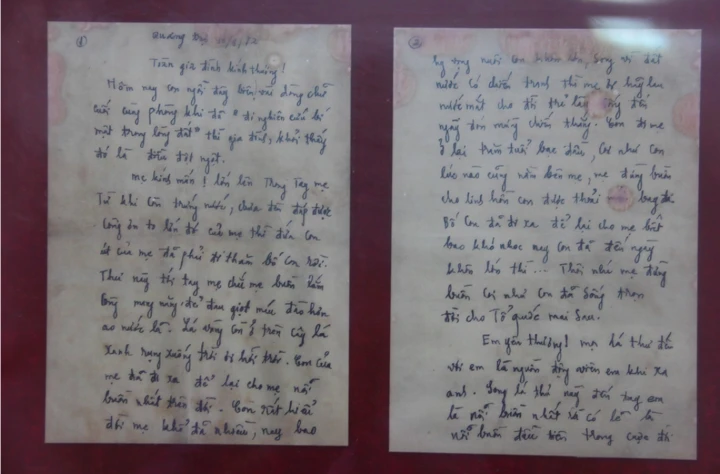 ①
Quảng Trị 11/9/72
Toàn gia đình kính thương!
Hôm nay con ngồi đây vài dòng chữ
cuối cùng phòng khi đã "đi nghiên cứu bí
mật trong lòng đất" thì gia đình khỏi thấy
đó là điều đột ngột.
Mẹ kính mến! lớn lên trong tay mẹ
Từ khi còn trứng nước, chưa đền đáp được
công ơn to lớn đó của mẹ thì đứa con
út của mẹ đã phải đi theo bố con rồi.
Thư này tới tay mẹ chắc mẹ buồn lắm
Lòng mẹ nặng đau giọt máu đào hơn
ao nước lã. Lá vàng còn ở trên cây lá
xanh rụng xuống trời ơi hỡi trời. Con của
mẹ đã đi xa để lại cho mẹ nỗi
buồn nhất trên đời. Con rất hiểu
đời mẹ khổ đã nhiều, nay bao
②
hy vọng nuôi con khôn lớn, Song vì đất
nước có chiến tranh thì mẹ ơi hãy lau
nước mắt cho đời trẻ lại đến
ngày đón mừng chiến thắng. Con đi mẹ
ở lại trăm tuổi bạc đầu, Coi như con
lúc nào cũng nằm bên mẹ, mẹ đừng buồn
cho linh hồn con được thoải bay đi
Bố con đã đi xa để lại cho mẹ biết
bao khó nhọc nay con đã đến ngày
khôn lớn thì... Thôi nhé mẹ đừng
buồn coi như con đã sống trọn
đời cho Tổ quốc mai sau.
Em yêu thương! mọi lá thư đến
với em là nguồn động viên em khi xa
anh. Song lá thư này đến tay em
là nỗi buồn nhất và có lẽ là
nỗi buồn đầu tiên trong cuộc đời